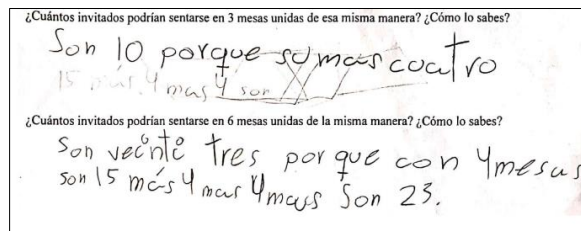 ¿Cuántos invitados podrían sentarse en 3 mesas unidas de esa misma manera? ¿Cómo lo sabes?
Son 10 porque sumas cuatro
15 más 4 mas 4 son
¿Cuántos invitados podrían sentarse en 6 mesas unidas de la misma manera? ¿Cómo lo sabes?
Son veinte tres por que con 4 mesas
son 15 más 4 mas 4 mas Son 23.